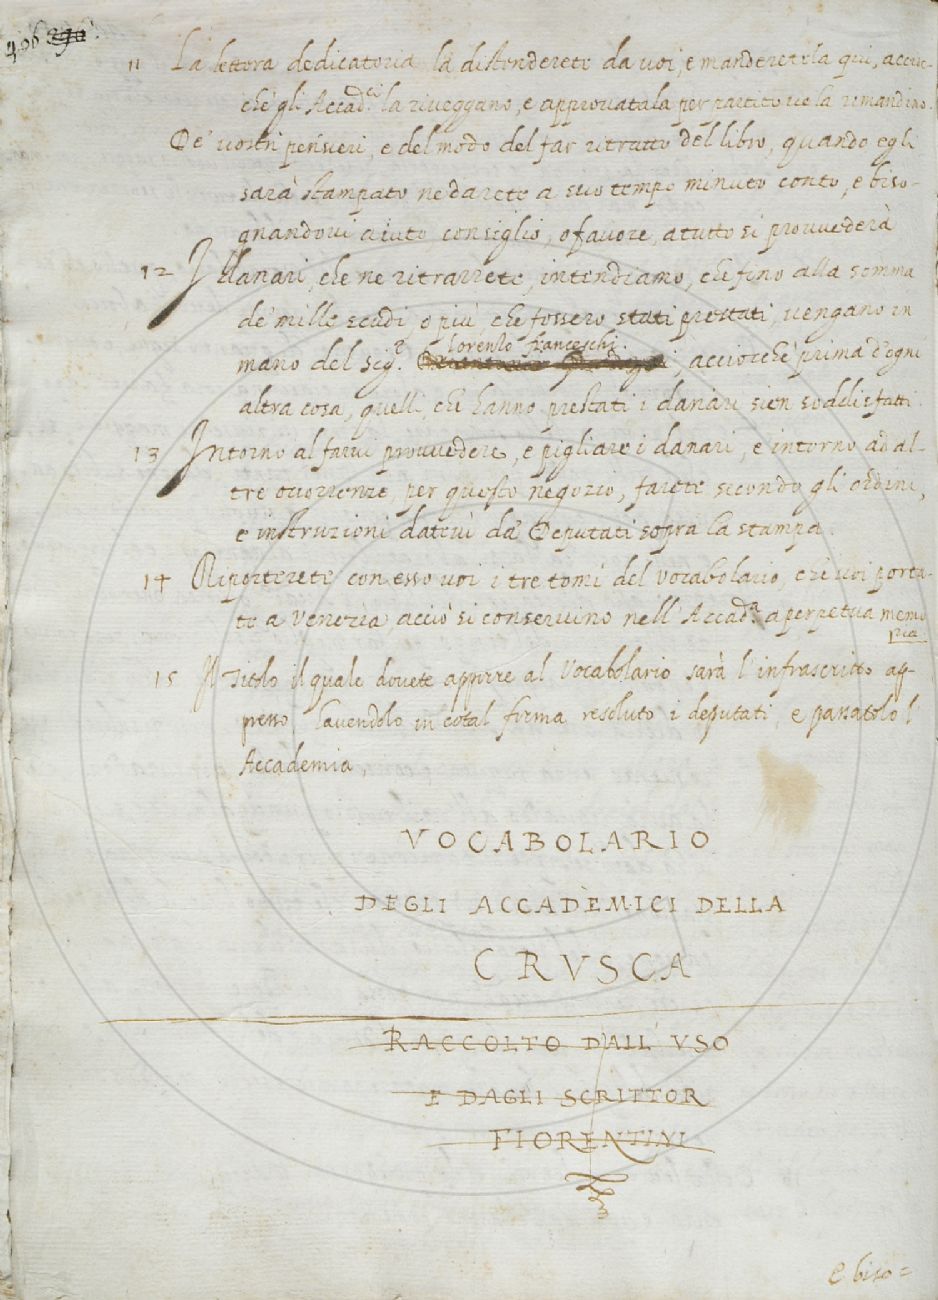 406 390
11 La lettera dedicatoria la distenderete da voi, e manderetela qui, accioc-
chè gli Accad.ci la riveggano, e approvatala per partito ve la rimandino.
De' vostri pensieri, e del modo del far ritratto del libro, quando egli
sarà stampato ne darete a suo tempo minuto conto, e biso-
gnandovi aiuto consiglio, o favore, a tutto si provvederà
12 I danari, che ne ritrarrete, intendiamo, che fino alla somma
de' mille scudi, o più, che fossero stati prestati, vengano in
mano del Sig.r Lorenzo Franceschi, acciocchè prima d'ogni
altra cosa, quelli, che hanno prestati i danari sien soddisfatti.
13 Intorno al farvi provvedere, e pigliare i danari, e intorno ad al-
tre occorrenze, per questo negozio, farete secondo gli ordini,
e instruzioni datevi da' Deputati sopra la stampa.
14 Riporterete con esso voi i tre tomi del vocabolario, che voi porta-
te a Venezia, acciò si conservino nell'Accad.a a perpetua memo
ria
15 Il Titolo il quale dovete apporre al Vocabolario sarà l'infrascritto ap-
presso, havendolo in cotal forma resoluto i deputati, e passatolo l
Accademia.
VOCABOLARIO
DEGLI ACCADEMICI DELLA
CRVSCA
RACCOLTO DALL' VSO
E DAGLI SCRITTOR
FIORENTINI
E biso=